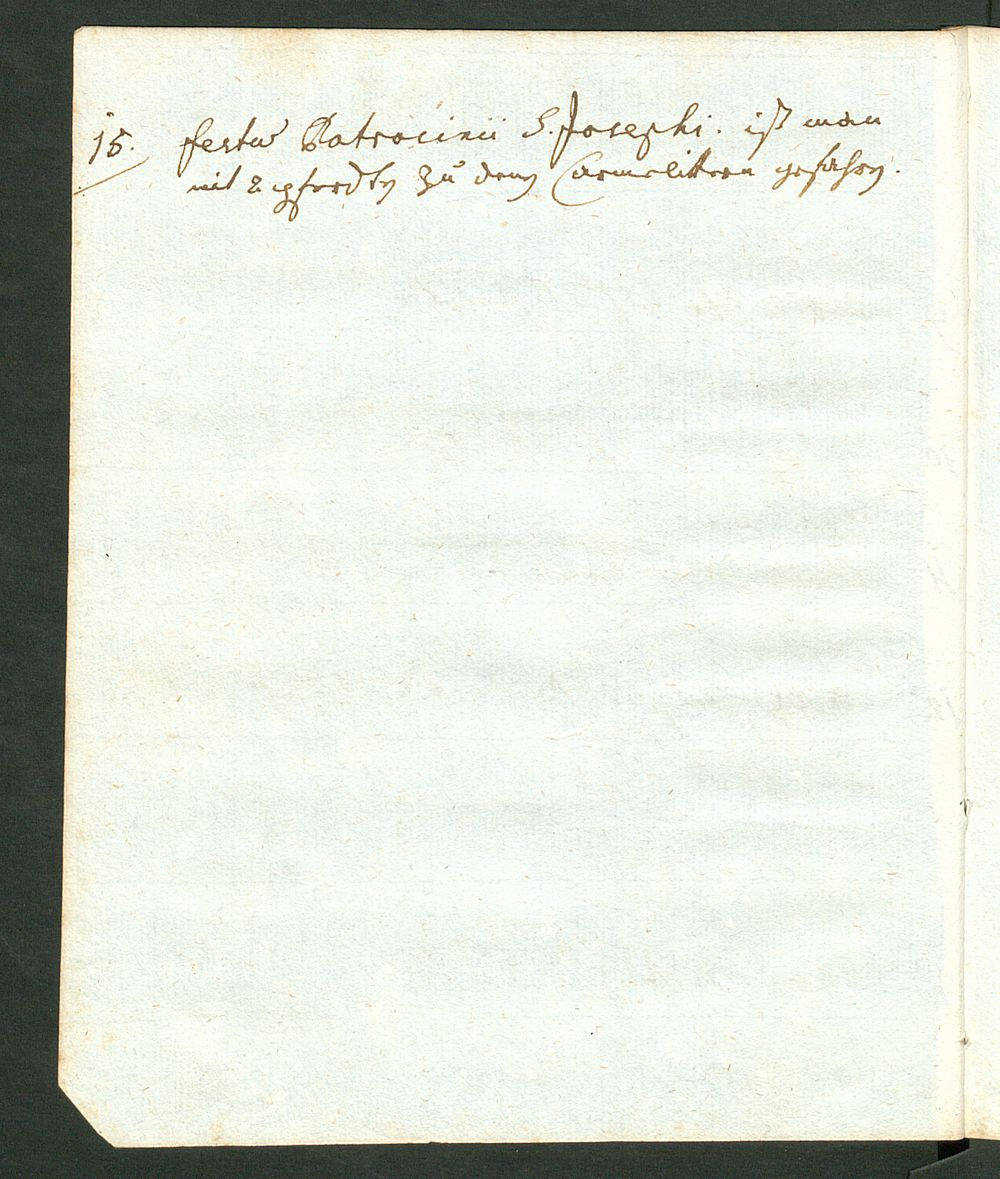 15. festu Patrocinii S. Josephi. iſt man
mit 2 pferdten zu denen Carmelittern gefahren.